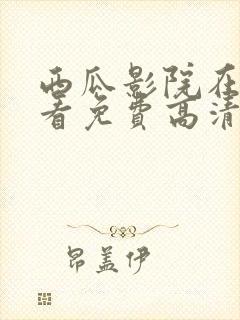 西瓜影院在
看免费高清
昂盖伊